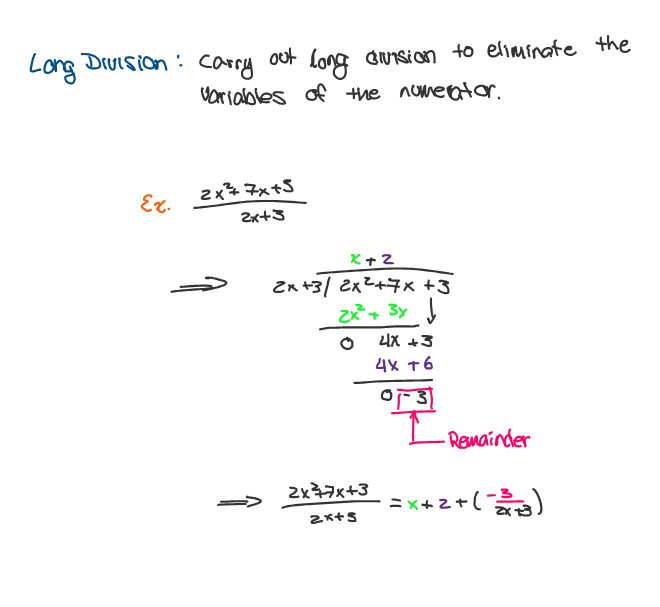 Long Division: Carry out long division to eliminate the
variables of the numerator.
Ex. 2x²+7x+5
2x+3
x+2
⇒ 2x+3/ 2x²+7x+3
2x²+3x ↓
0 4x+3
4x+6
0 -3
Remainder
⇒ 2x²+7x+3 = x+2+(-3
2x+5 2x+3)